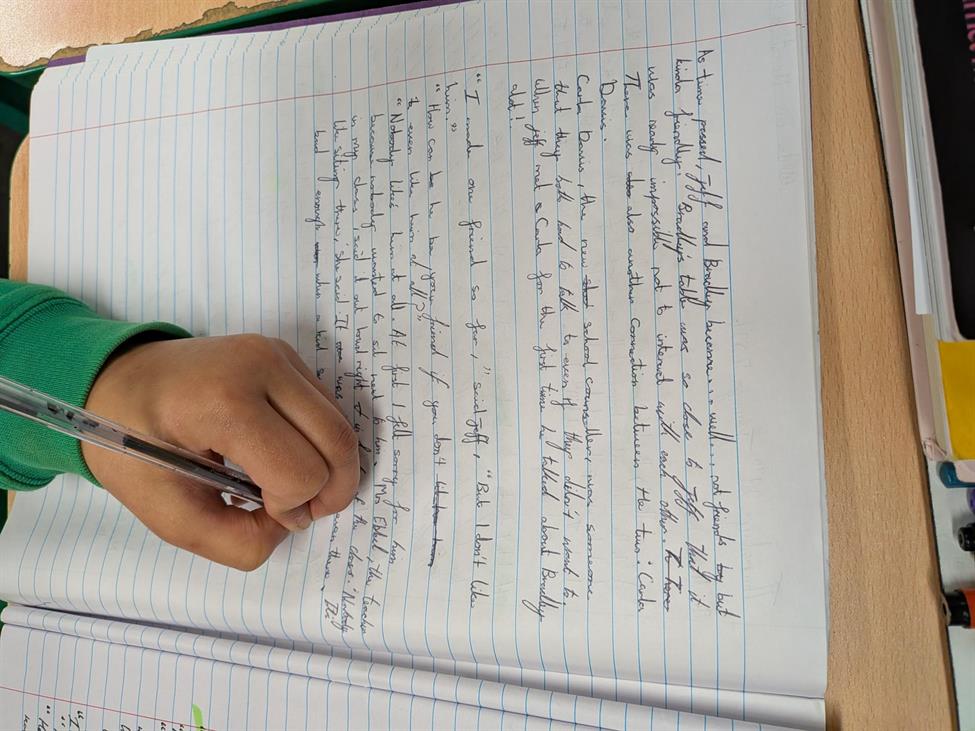 As time passed, Jeff and Bradley became... well... not friends but
kinda friendly. Bradley's table was so close to Jeff that it
was realy impossible not to interact with each other.
There was also another connection between the two: Carla
Davis.
Carla Davis, the new school counseller, was someone
that they both had to talk to even if they didn't want to.
When Jeff met Carla for the first time he talked about Bradley
alot!
"I made one friend so far," said Jeff, "But I don't like
him."
"How can be he be your friend if you don't
to even like him at all?"
"Nobody likes him at all. At first I felt sorry for him
because nobody wanted to sit next to him. Mrs Ebbel, the teacher
in my class said it out loud right in of the class. 'Nobody
likes siting there,' she said. It was even there. It's
bad enough when a kid s
"I
"
"He